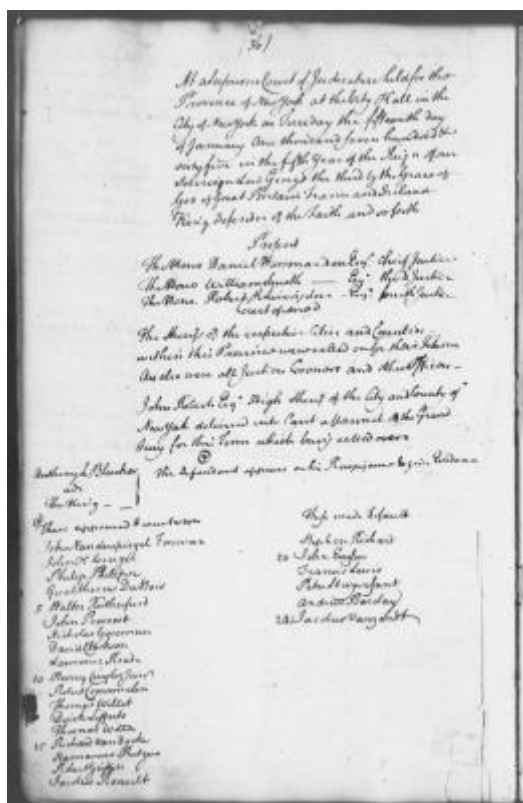 (36)
At a Supreme Court of Judicature held for the
Province of New York at the City Hall in the
City of New York on Tuesday the fifteenth day
of January One thousand seven hundred &
sixty five in the fifth Year of the Reign of our
Sovereign Lord George the third by the Grace of
God of Great Britain France and Ireland
King Defender of the Faith and so forth
Present
The Honble Daniel Horsmanden Esqr. Chief Justice
The Honble William Smith Esqr. third Justice
The Honble Robert R Livingston Esqr. fourth Justice
Court opened
The Sheriffs of the respective Cities and Counties
within this Province were called
As also were all Justices Coroners and other Officers
John Roberts Esqr. High Sheriff of the City and County of
New York delivered into Court a Pannel of the Grand
Jury for this Term which being called over
Anthony L Bleecker
ads
The King
The Defendant appears on his Recognizance to give Evidence
There appeared
John Vanderspiegel Foreman
John H Cruger
Philip Philipse
Gualtherus DuBois
5 Walter Rutherfurd
John
Nicholas Governeur
David Clarkson
Lawrence Reade
10 Henry Cuyler Junr
Robert Crommelin
Thomas Willet
Dirck Lefferts
Thomas
15 Richard
Hermanus Rutgers
Peter
Jacobus
These made Default
Stephen Richard
20 John
Francis Lewis
Peter Stuyvesant
Andrew Barclay
24 Jacobus Vanzandt